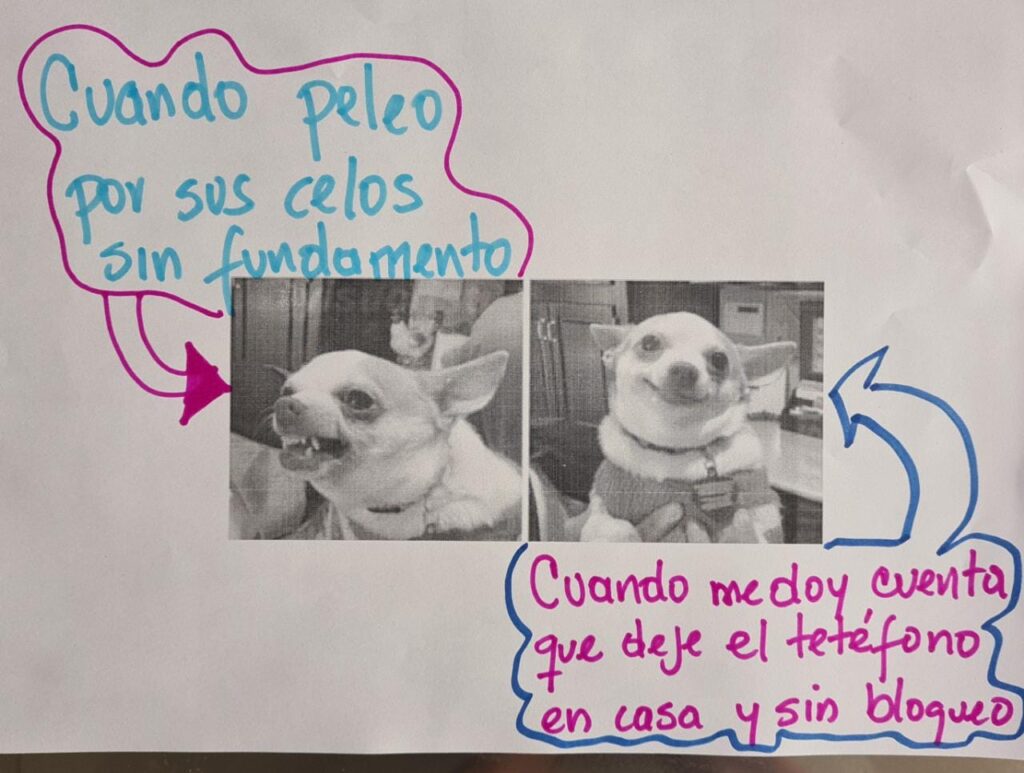 Cuando peleo
por sus celos
sin fundamento
Cuando me doy cuenta
que deje el tetéfono
en casa y sin bloqueo